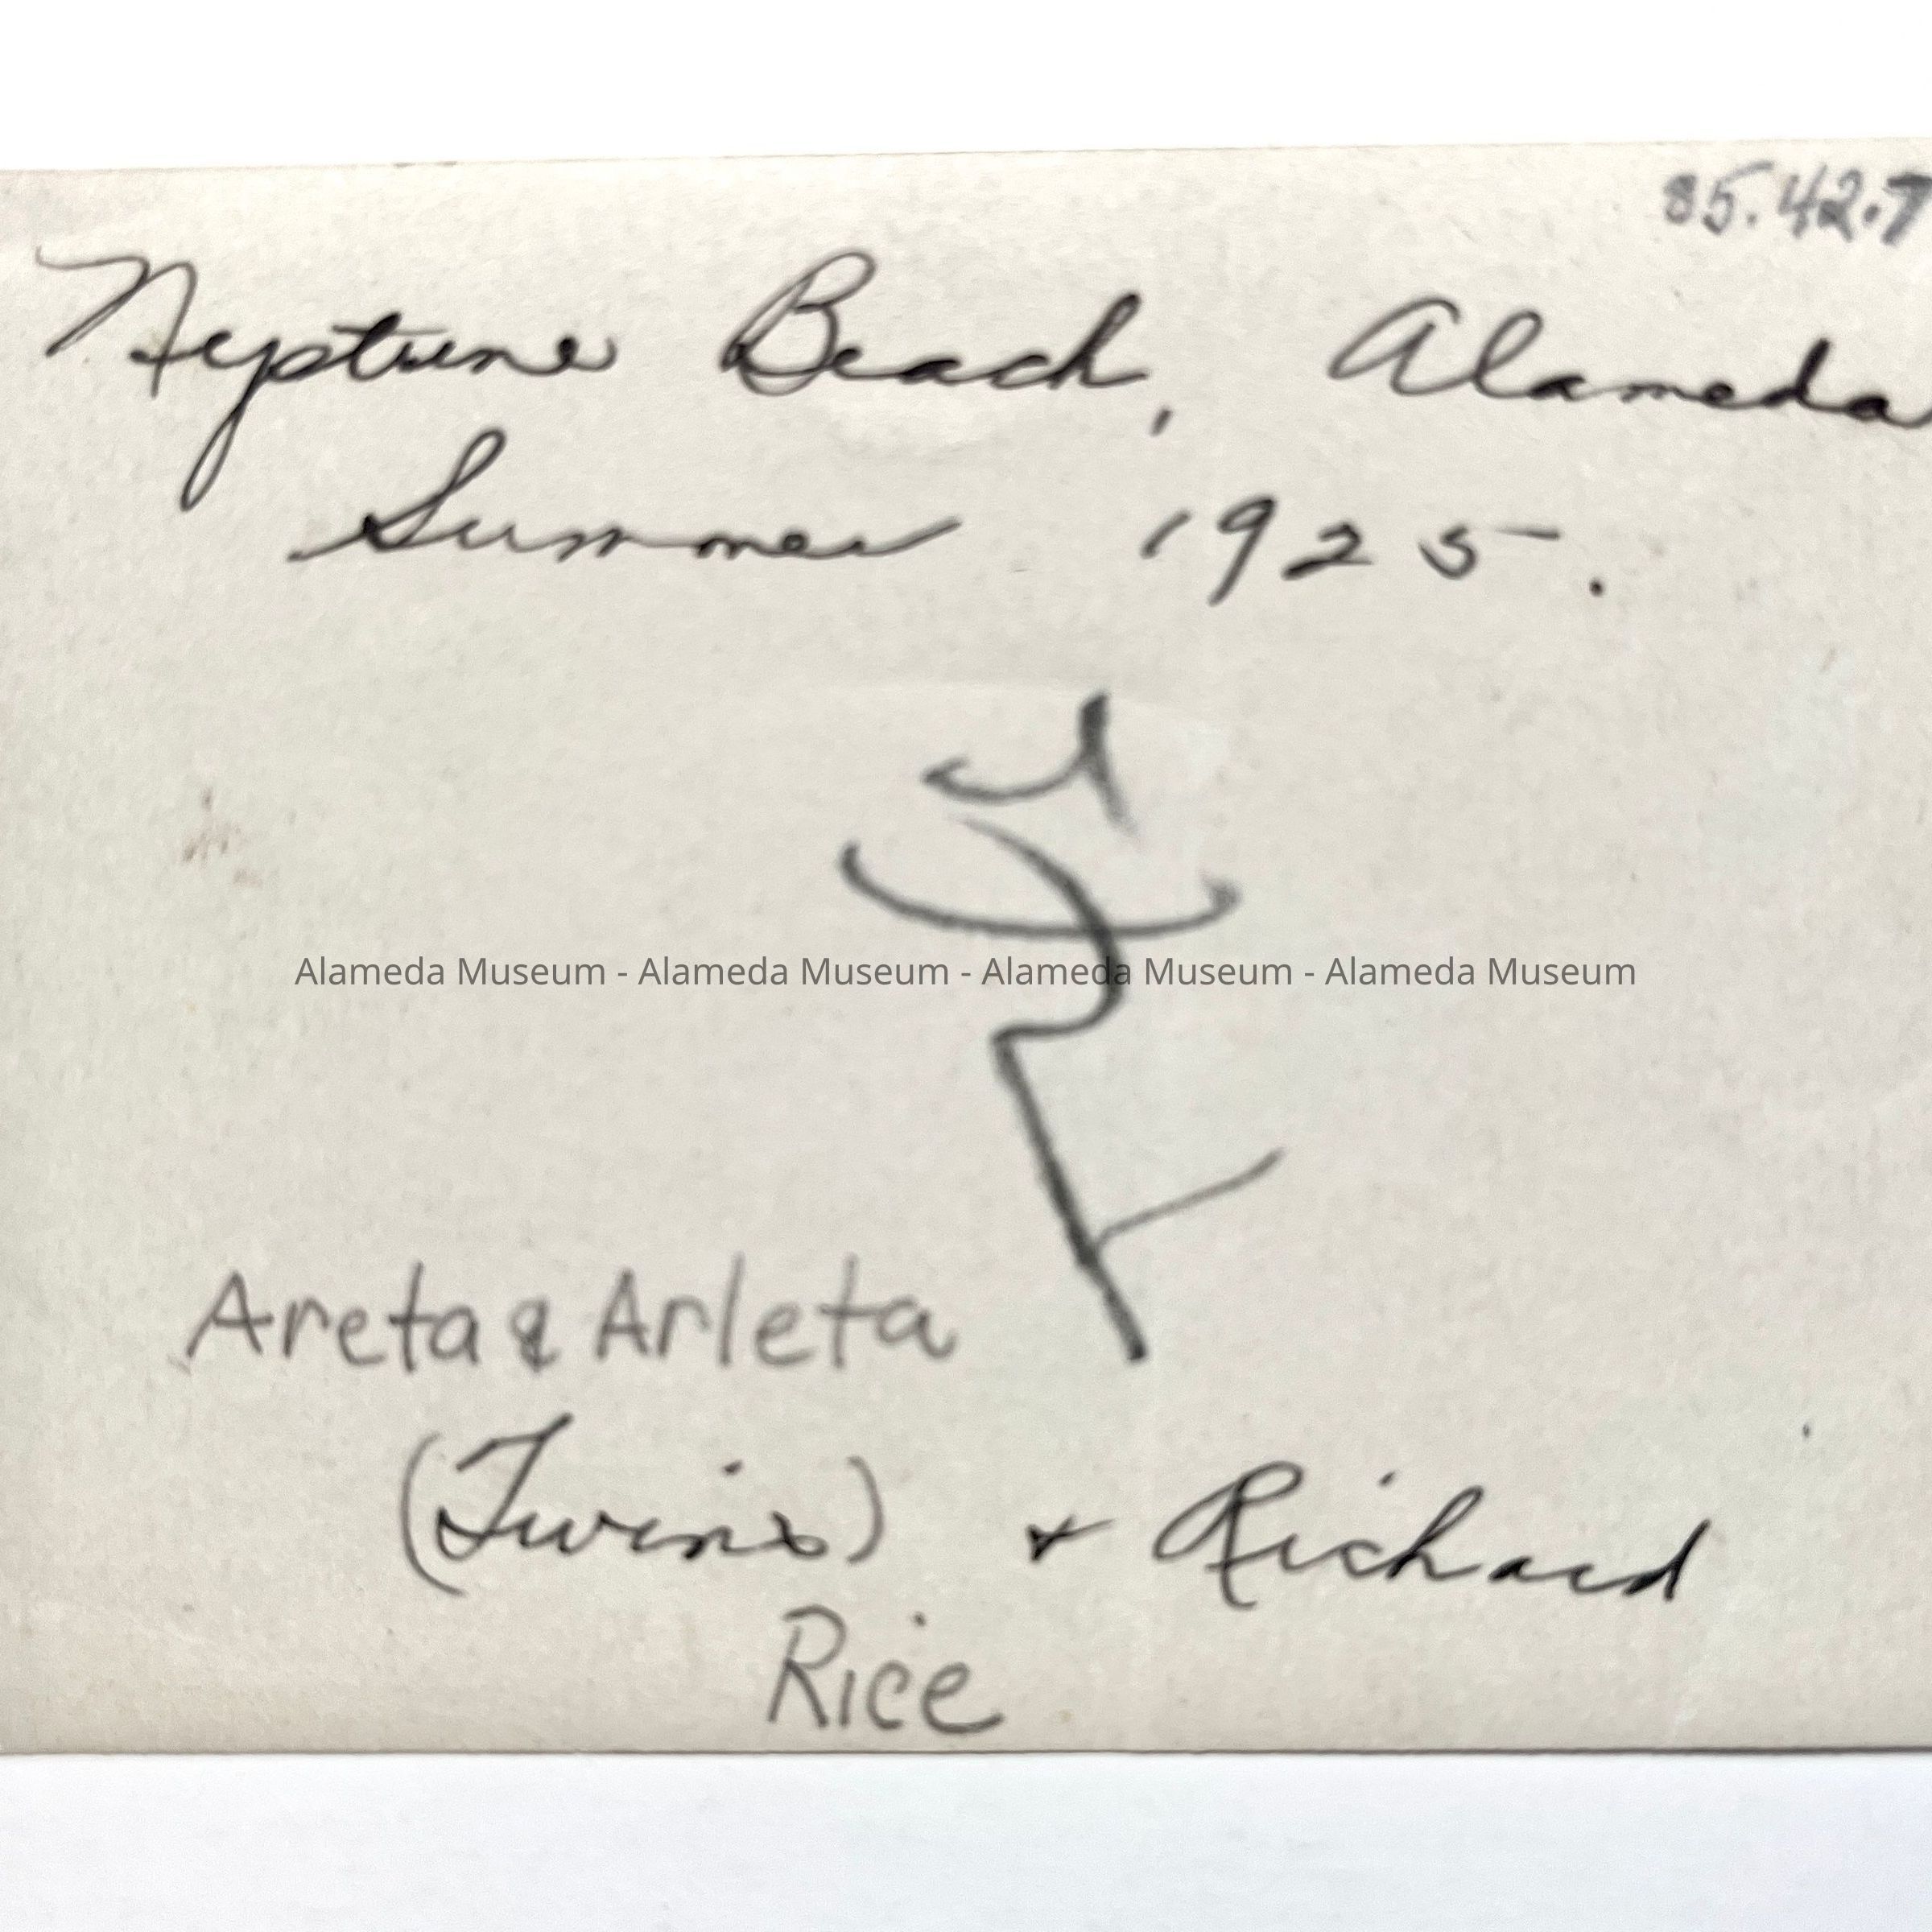 85.42.7
Neptune Beach, Alameda
Summer 1925.
Alameda Museum - Alameda Museum - Alameda Museum - Alameda Museum
Areta & Arleta
(Twins) & Richard
Rice